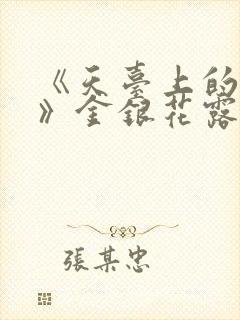 《天臺上的
》金銀花露
張某忠